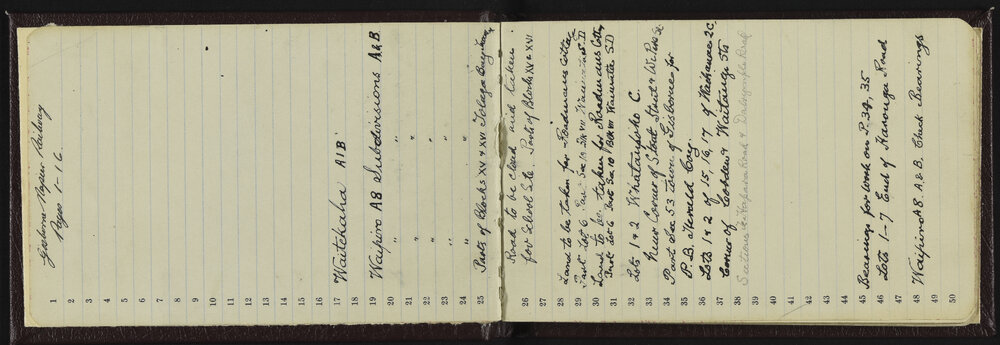 Gisborne-Napier Railway
Pages 1-16
1
2
3
4
5
6
7
8
9
10
11
12
13
14
15
16
17 Waitekaha A1B
18
19 Waipiro A8 Subdivisions A&B
20 " "
21 " "
22 " "
23 " "
24 " "
25 Parts of Blocks XV & XVI Tolaga
Road to be closed and taken
26 for School Site. Parts of Block XV & XVI
27
28 Land to be taken for Roadman's Cottage
29 Part Lot 6 Sec 10 Blk VII S.D
30 Land to be taken for Roadmans Cottage
31 Part Lot 6 Part Sec 10 Blk VII S.D
32 Lots 1 & 2 Whataupoko C.
33 New Corner of Stout Street &
34 Part Sec 53 Town of Gisborne for
35 P.B. Herald Coy
36 Lots 1 & 2 of 15, 16, 17 of 2C
37 Corner of Cobden & Waitangi Sts
38 Sections Kaipara Road & Dalrymple Road
39
40
41
42
43
44
45 Bearings for work on P. 34, 35
46 Lots 1-7 End of Road
47
48 Waipiro A8 A & B. Check Bearings
49
50